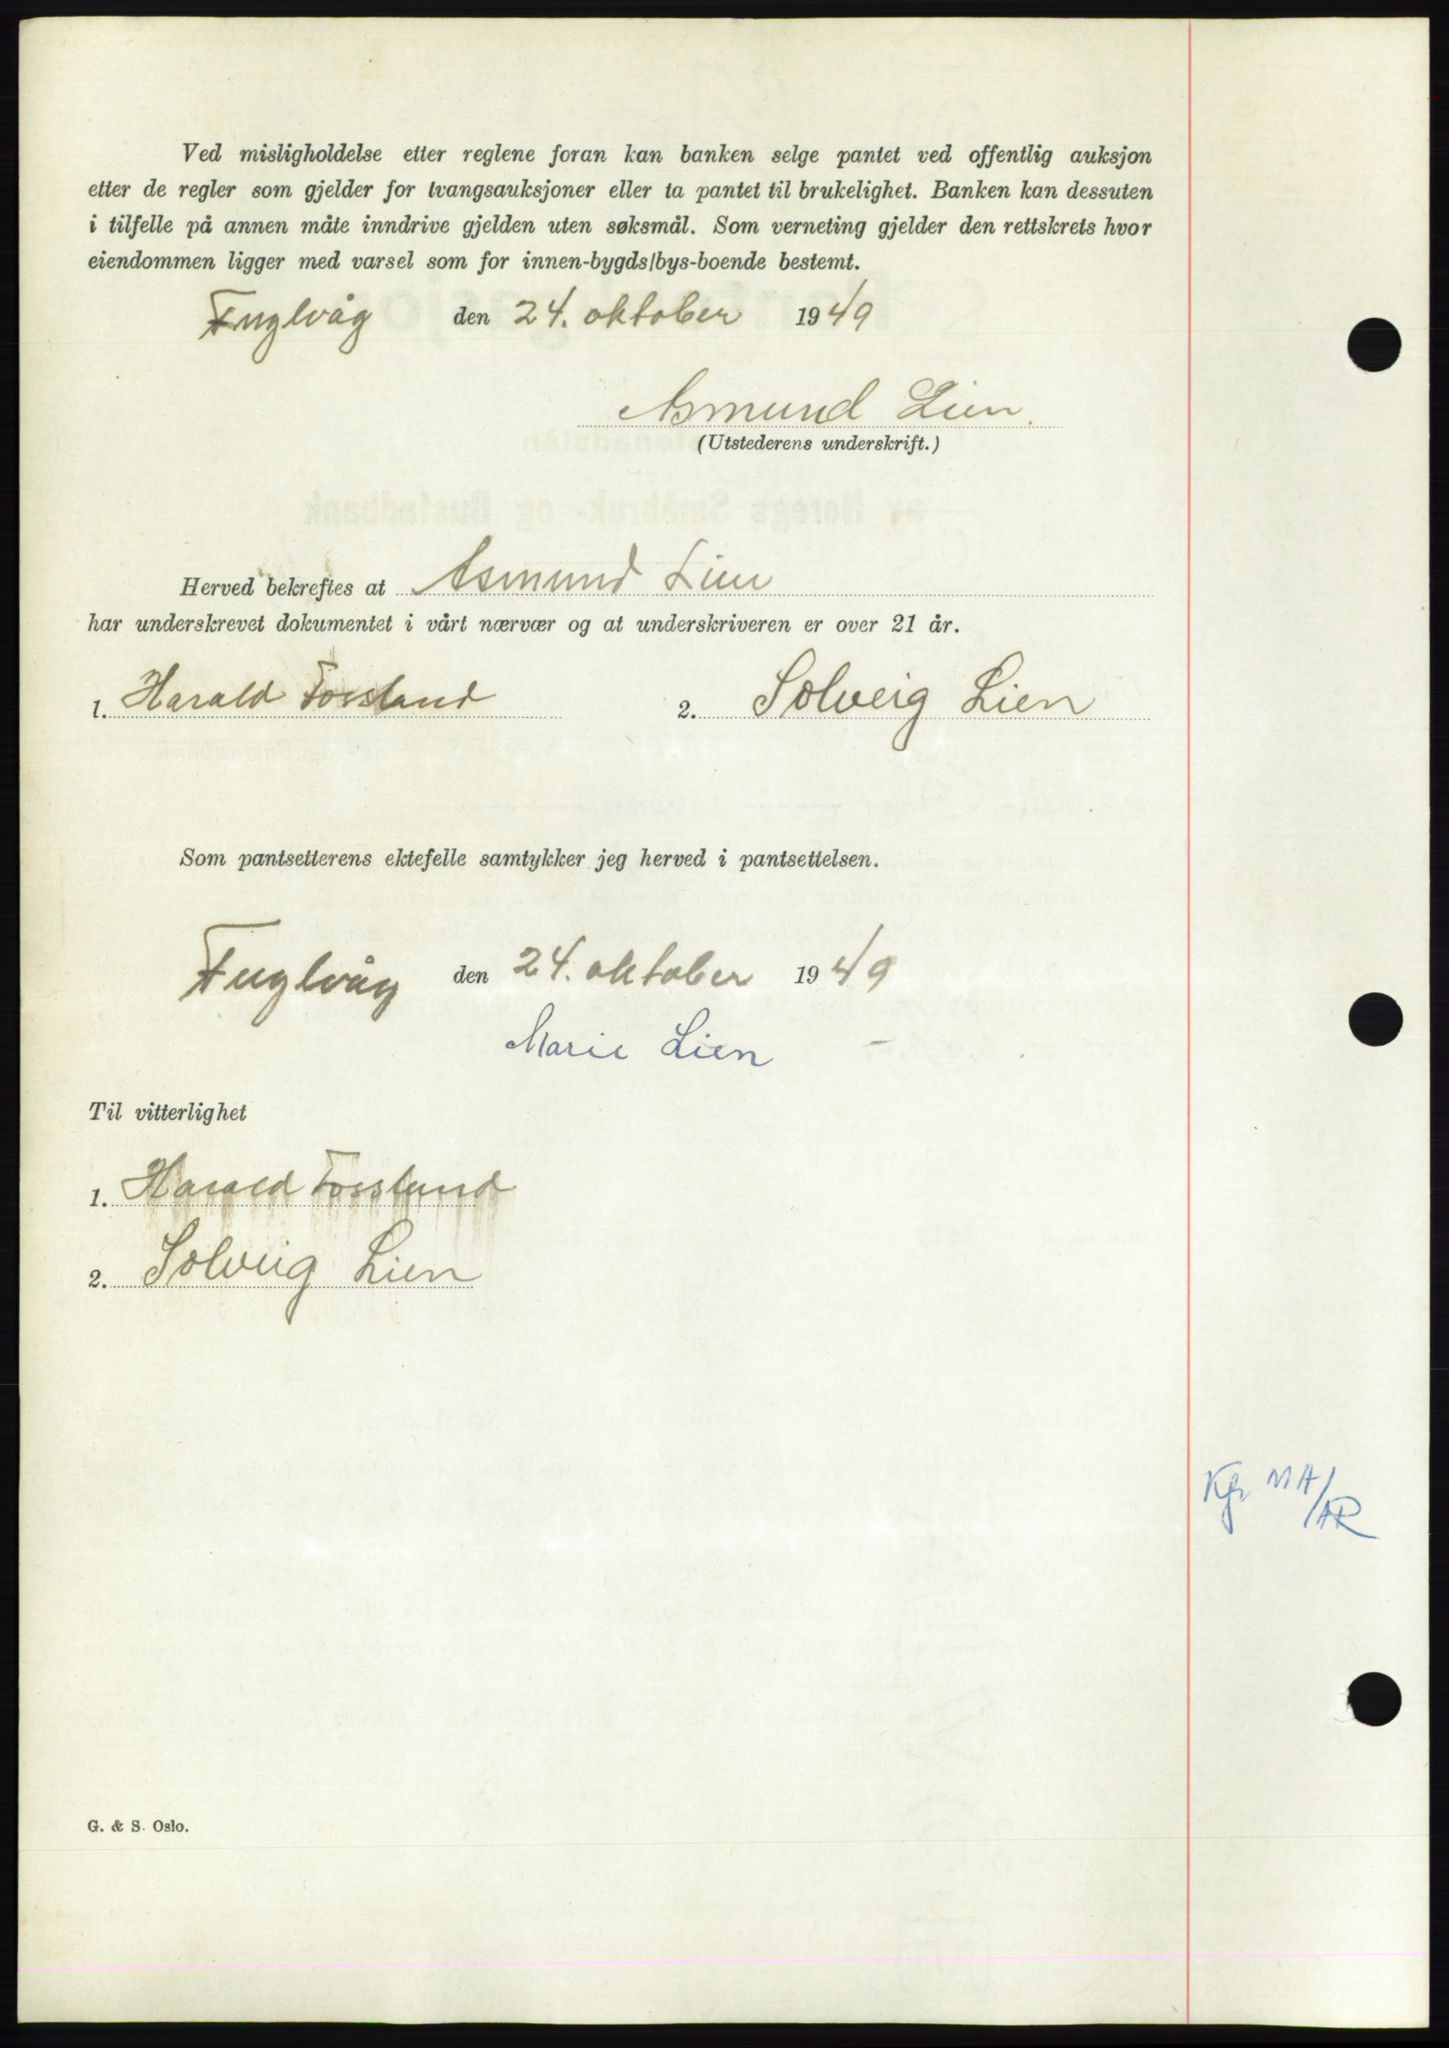 Ved misligholdelse etter reglene foran kan banken selge pantet ved offentlig auksjon
etter de regler som gjelder for tvangsauksjoner eller ta pantet til brukelighet. Banken kan dessuten
i tilfelle på annen måte inndrive gjelden uten søksmål. Som verneting gjelder den rettskrets hvor
eiendommen ligger med varsel som for innen-bygds/bys-boende bestemt.
Fuglvåg den 24. oktober 1949
Asmund Lien.
(Utstederens underskrift.)
Herved bekreftes at Asmund Lien
har underskrevet dokumentet i vårt nærvær og at underskriveren er over 21 år.
1. Harald Fossland 2. Solveig Lien
Som pantsetterens ektefelle samtykker jeg herved i pantsettelsen.
Fuglvåg den 24. oktober 1949
Marie Lien
Til vitterlighet
1. Harald Fossland
2. Solveig Lien
Kfr MA/AR
G. & S. Oslo.